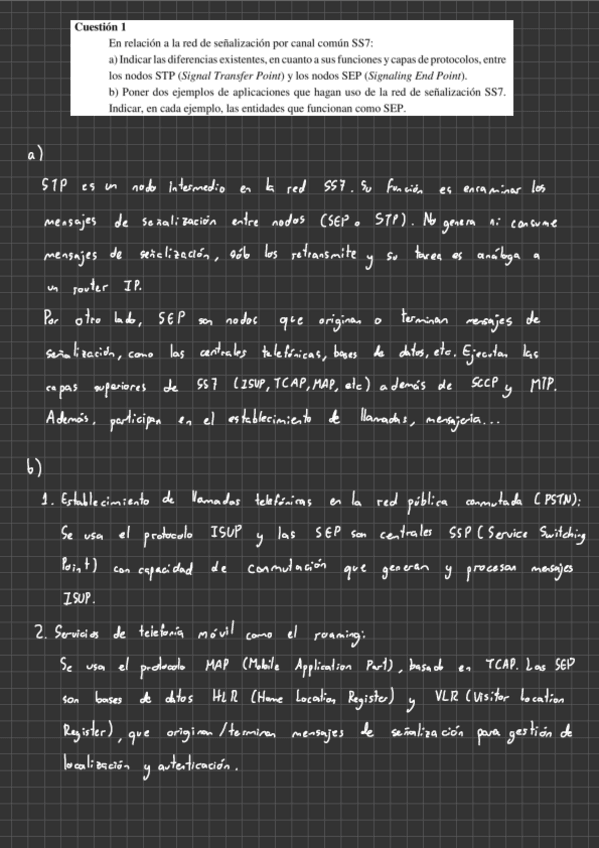 Cuestión 1
En relación a la red de señalización por canal común SS7:
a) Indicar las diferencias existentes, en cuanto a sus funciones y capas de protocolos, entre
los nodos STP (Signal Transfer Point) y los nodos SEP (Signaling End Point).
b) Poner dos ejemplos de aplicaciones que hagan uso de la red de señalización SS7.
Indicar, en cada ejemplo, las entidades que funcionan como SEP.
a)
STP es un nodo Intermedio en la red SS7. Su función es encaminar los
mensajes de señalización entre nodos (SEP o STP). No genera ni consume
mensajes de señalización, sólo los retransmite y su tarea es análoga a
un router IP.
Por otro lado, SEP son nodos que originan o terminan mensajes de
señalización, como las centrales telefónicas, bases de datos, etc. Ejecutan las
capas superiores de SS7 (ISUP, TCAP, MAP, etc) además de SCCP y MTP.
Además, participan en el establecimiento de llamadas, mensajería...
b)
1. Establecimiento de llamadas telefónicas en la red pública conmutada (PSTN):
Se usa el protocolo ISUP y las SEP son centrales SSP (Service Switching
Point) con capacidad de conmutación que generan y procesan mensajes
ISUP.
2. Servicios de telefonía móvil como el roaming:
Se usa el protocolo MAP (Mobile Application Part), basado en TCAP. Las SEP
son bases de datos HLR (Home Location Register) y VLR (Visitor Location
Register), que originan/terminan mensajes de señalización para gestión de
localización y autenticación.